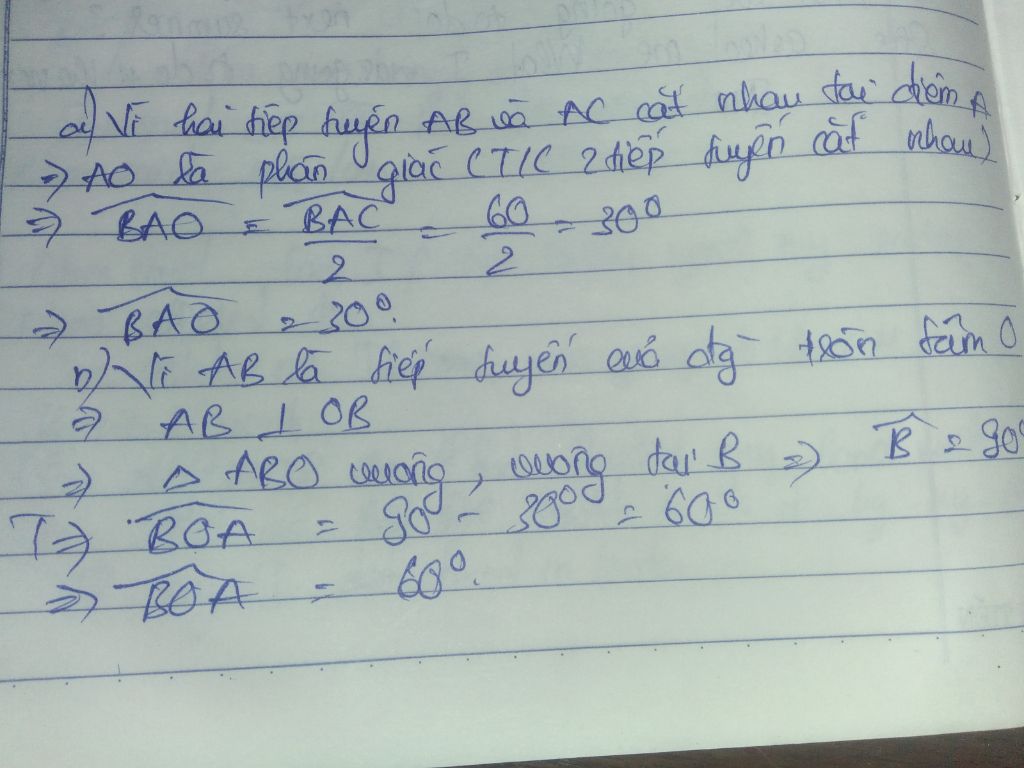 a) Vì hai tiếp tuyến AB và AC cắt nhau tại điểm A
=> AO là phân giác (T/C 2 tiếp tuyến cắt nhau)
=> \widehat{BAO} = \frac{\widehat{BAC}}{2} = \frac{60}{2} = 30⁰
=> \widehat{BAO} = 30⁰.
b) Vì AB là tiếp tuyến của đg tròn tâm O
=> AB ⊥ OB
=> △ ABO vuông, vuông tại B => \widehat{B} = 90⁰
=> \widehat{BOA} = 90⁰ - 30⁰ = 60⁰
=> \widehat{BOA} = 60⁰.